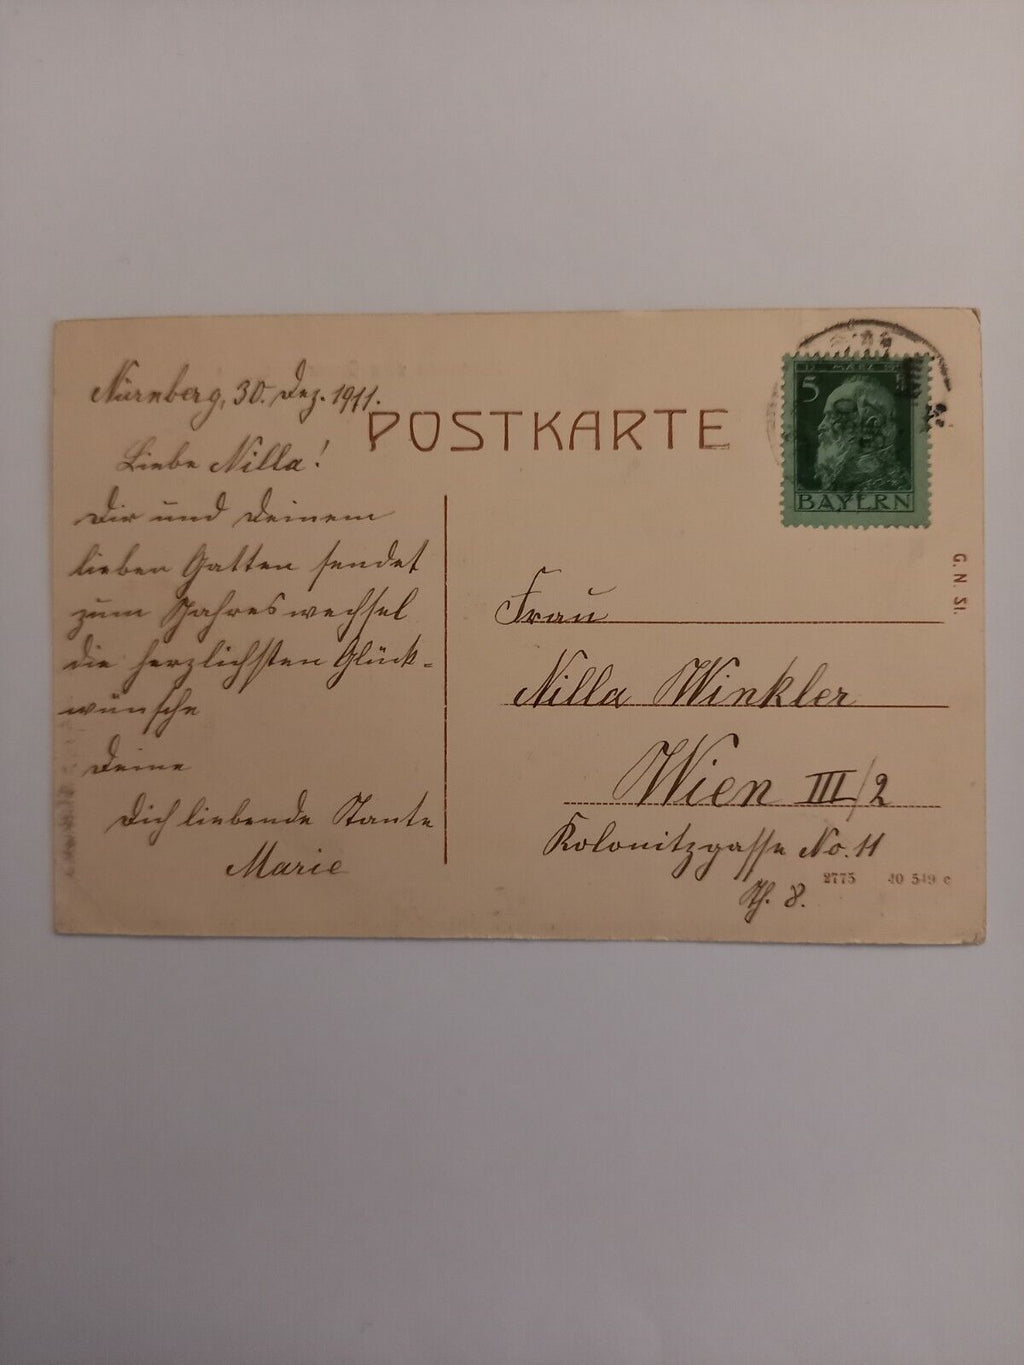 Nürnberg, 30. Dez. 1911.
POSTKARTE
Liebe Nilla!
Dir und Deinem
lieben Gatten sendet
zum Jahreswechsel
die herzlichsten Glück-
wünsche
Deine
Dich liebende Tante
Marie
5
BAYERN
G. N. St.
Frau
Nilla Winkler
Wien III/2
Kolonitzgasse No. 11
Th. 8.
2775 40 549 c